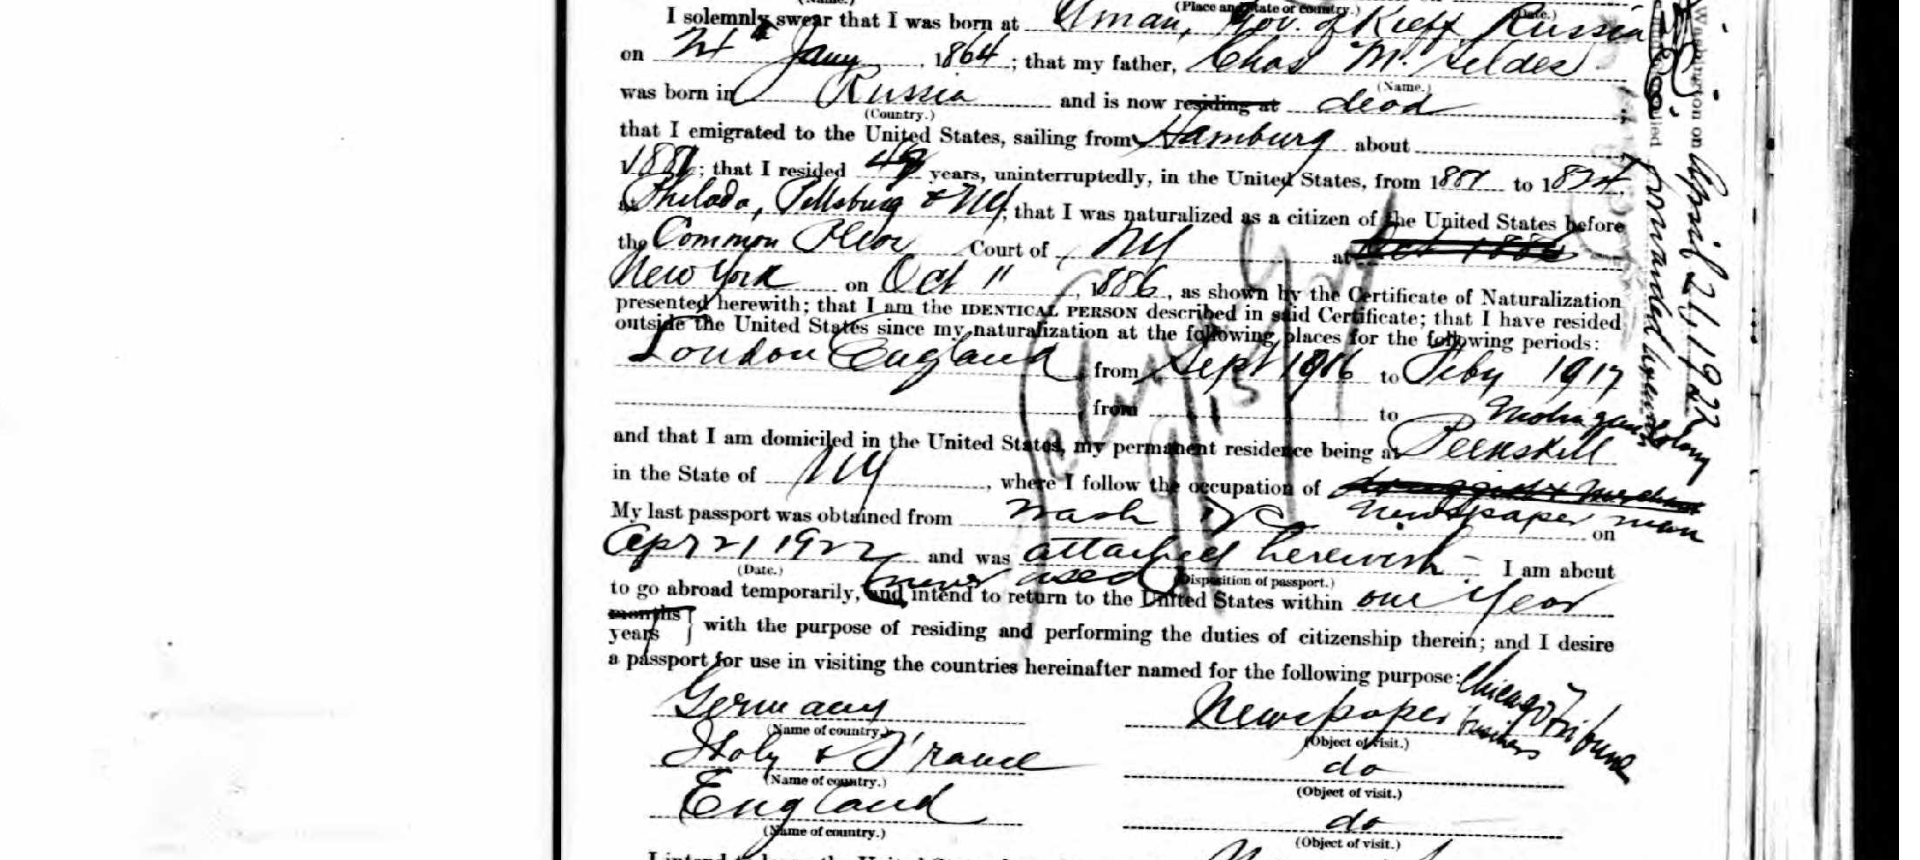 (Place and State or country.) (Date.)
I solemnly swear that I was born at Uman, Gov. of Kieff Russia
on Jany , 1864 ; that my father, Chas M. Seldes
(Name.)
was born in Russia and is now residing at dead
(Country.)
that I emigrated to the United States, sailing from Hamburg about
; that I resided years, uninterruptedly, in the United States, from 1881 to 18
at Philada, Pittsburg & NY; that I was naturalized as a citizen of the United States before
the Common Pleas Court of NY at
New York on Oct 11 , 1886, as shown by the Certificate of Naturalization
presented herewith; that I am the IDENTICAL PERSON described in said Certificate; that I have resided
outside the United States since my naturalization at the following places for the following periods:
London England from Sept 1916 to Feby 1917
from to
Mohigan Colony
and that I am domiciled in the United States, my permanent residence being at Peekskill
in the State of NY , where I follow the occupation of
newspaper man
My last passport was obtained from Wash DC on
Apr 21 1922 and was attached herewith I am about
(Date.) (never used) (Disposition of passport.)
to go abroad temporarily, and intend to return to the United States within one year
months
years } with the purpose of residing and performing the duties of citizenship therein; and I desire
a passport for use in visiting the countries hereinafter named for the following purpose:
Germany Newspaper business Chicago Tribune
(Name of country.) (Object of visit.)
Italy & France do
(Name of country.) (Object of visit.)
England do
(Name of country.) (Object of visit.)
Washington on April 26, 1922
forwarded herewith